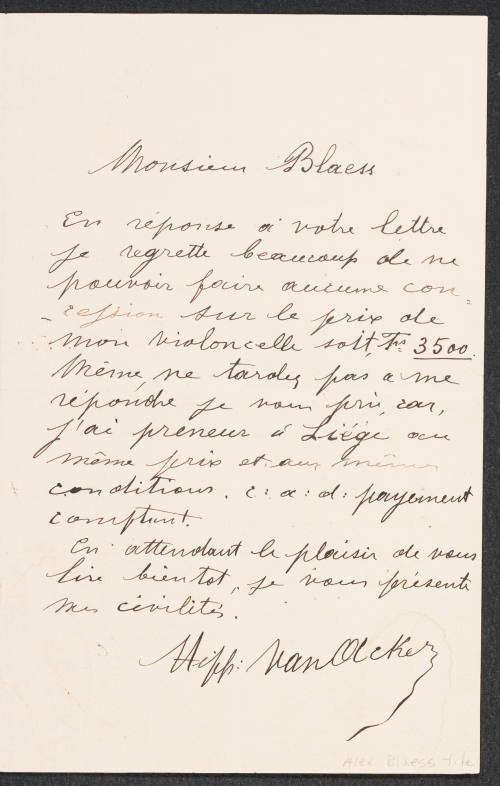 Monsieur Blaess
En réponse à votre lettre
je regrette beaucoup de ne
pouvoir faire aucune con=
=cession sur le prix de
mon violoncelle soit, Frs 3500.
Même, ne tardez pas a me
répondre je vous prie, car,
j'ai preneur à Liége au
même prix et aux mêmes
conditions. c: a: d: payement
comptant.
En attendant le plaisir de vous
lire bientot, je vous présente
mes civilités.
Hipp: Van Acker
Alex Blaess